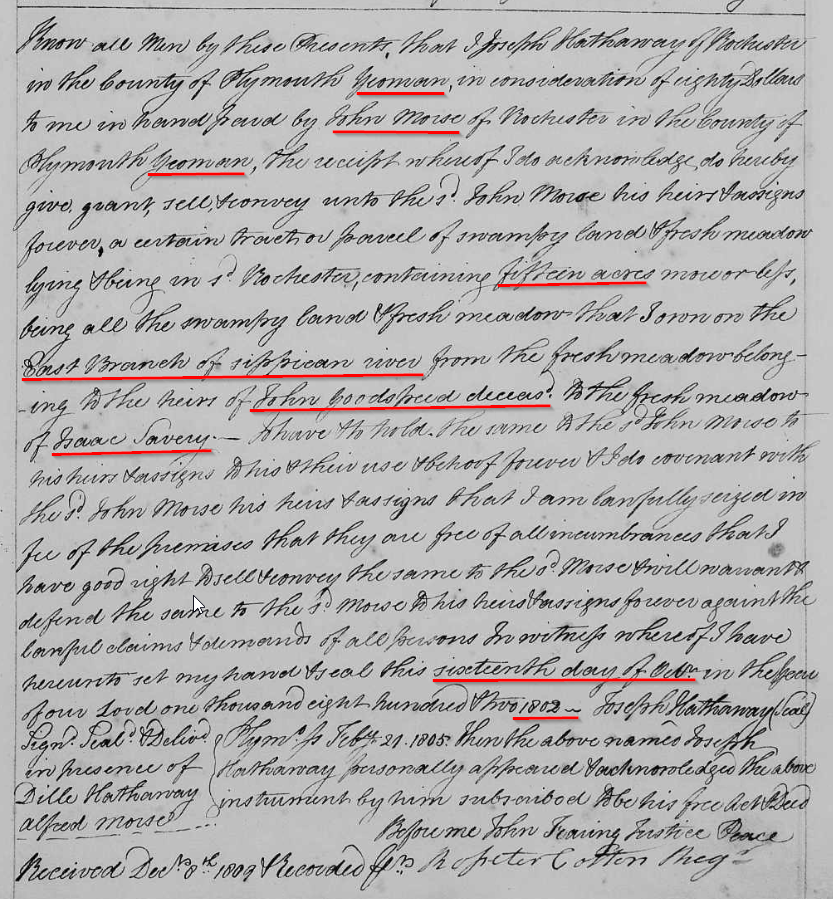 Know all Men by these Presents, that I Joseph Hathaway of Rochester
in the County of Plymouth Yeoman, in consideration of eighty Dollars
to me in hand paid by John Morse of Rochester in the County of
Plymouth Yeoman, the receipt whereof I do acknowledge, do hereby
give, grant, sell, & convey unto the sd. John Morse his heirs & assigns
forever, a certain tract or parcel of swampy land & fresh meadow
lying & being in sd. Rochester, containing fifteen acres more or less,
being all the swampy land & fresh meadow that I own on the
East Branch of sippican river from the fresh meadow belong-
-ing to the heirs of John Goodspeed deceasd. to the fresh meadow
of Isaac Savery. — To have & to hold the same to the sd. John Morse to
his heirs & assigns to his & their use & behoof forever & I do covenant with
the sd. John Morse his heirs & assigns that I am lawfully seized in
fee of the premises that they are free of all incumbrances that I
have good right to sell & convey the same to the sd. Morse & will warrant &
defend the same to the sd. Morse to his heirs & assigns forever against the
lawful claims & demands of all persons In witness whereof I have
hereunto set my hand & seal this sixteenth day of Octr. in the year
of our Lord one thousand eight hundred & two 1802 — Joseph Hathaway (Seal)
Signd. Seald. & Delivd.
in presence of
Dille Hathaway
alfred morse
Plymo. ss Feby. 21. 1805. Then the above named Joseph
Hathaway personally appeared & acknowledged the above
instrument by him subscribed to be his free Act & Deed
Before me John Fearing Justice Peace
Received Decr. 8th. 1809 & Recorded Rosseter Cotton Regr.